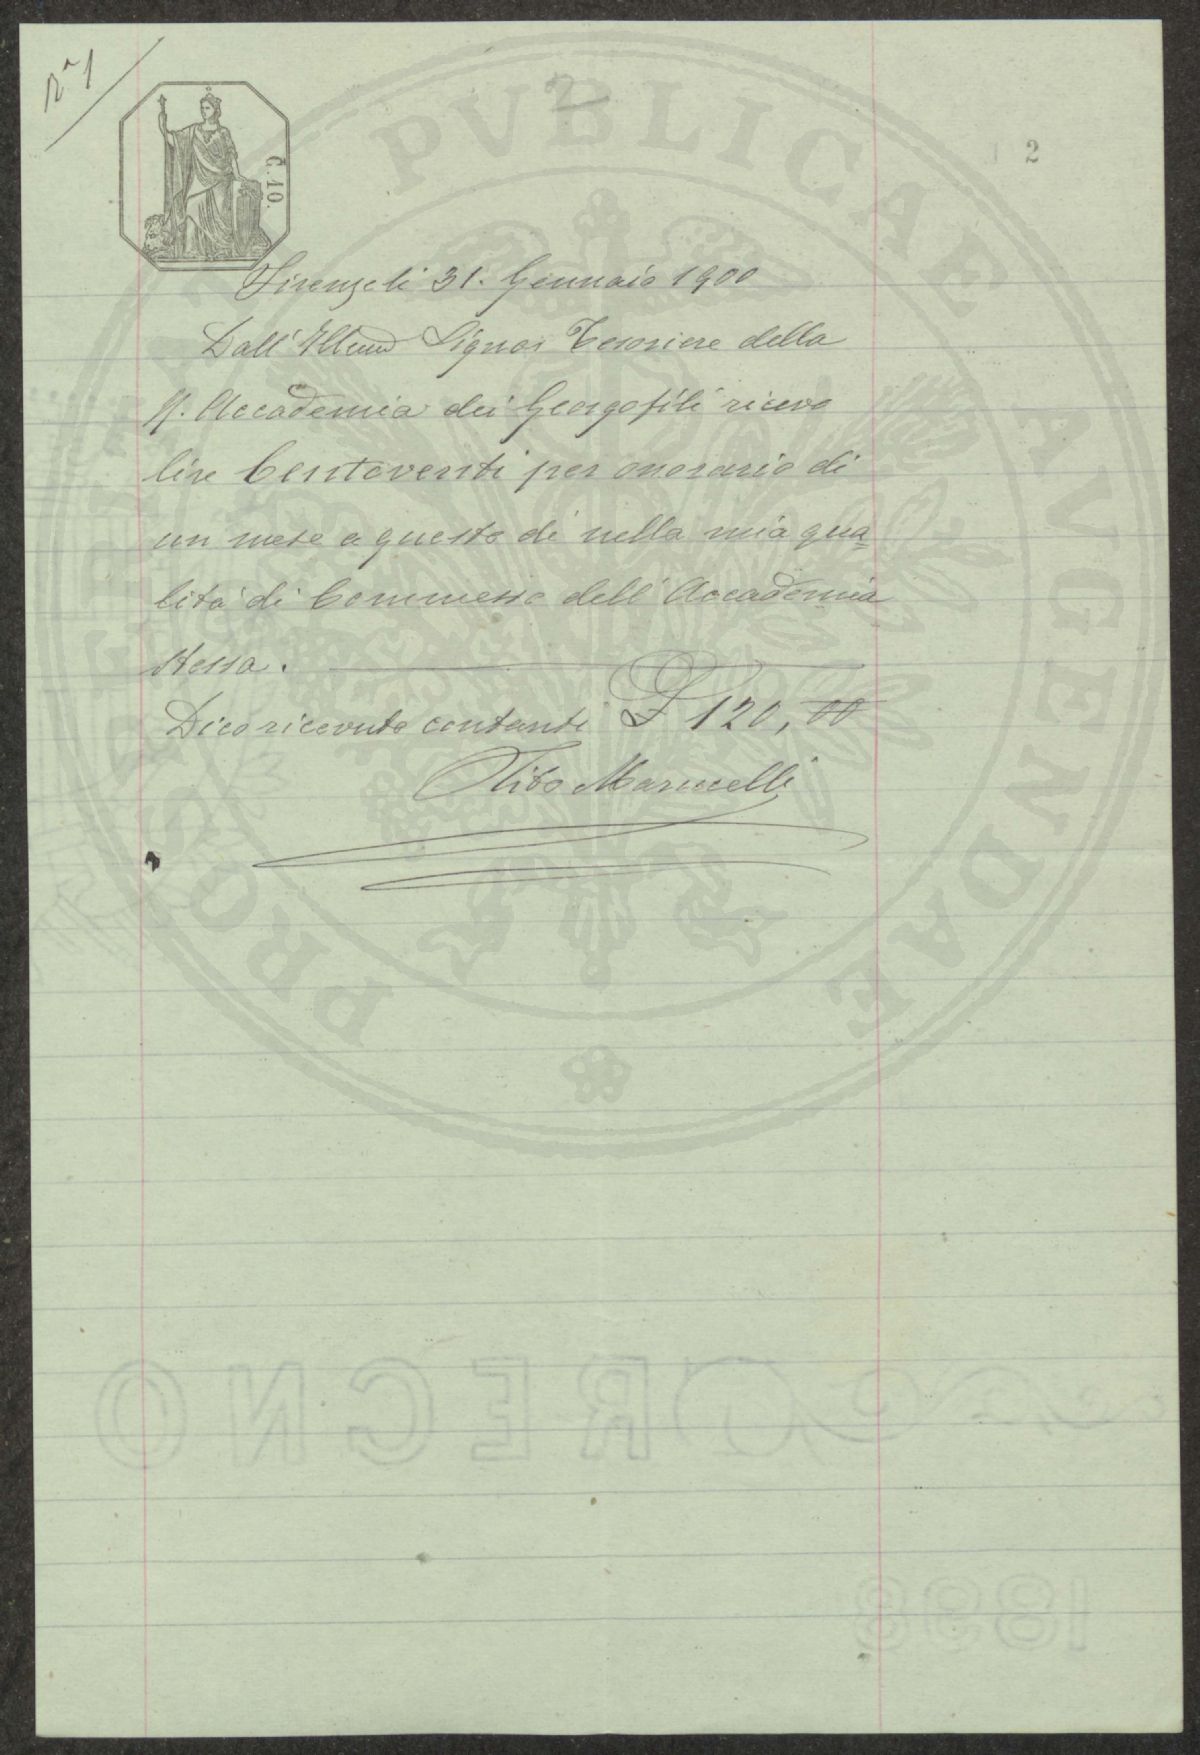 Nº 1
2
C. 10.
2
Firenze li 31. Gennaio 1900
Dall' Illmo Signor Tesoriere della
R. Accademia dei Georgofili ricevo
lire Centoventi per onorario di
un mese a questo dì nella mia qua=
lità di Commesso dell' Accademia
stessa.
Dico ricevute contanti £ 120,00
Tito Marucelli
PROSPERITATI PVBLICAE AVGENDAE
1898